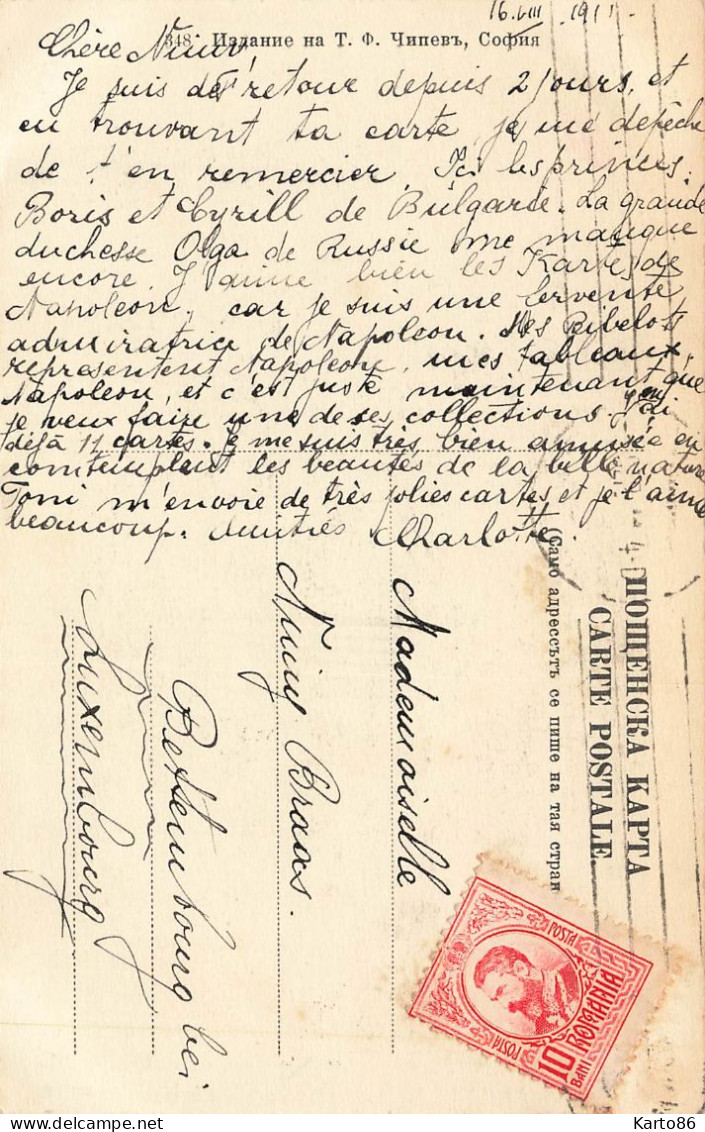 16.VIII.1911.
348. Издание на Т. Ф. Чипевъ, София
Chère
Je suis de retour depuis 2 jours, et
en trouvant ta carte, je me dépêche
de t'en remercier. Ici les princes
Boris et Cyrill de Bulgarie. La grande
duchesse Olga de Russie me manque
encore. J'aime bien les Kartes de
Napoleon, car je suis une fervente
admiratrice de Napoleon. Mes Bibelots
representent Napoleon, mes tableaux,
Napoleon, et c'est juste maintenant que
je veux faire une de ses collections. J'ai
déjà 11 cartes. Je me suis très bien amusée en
contemplent les beautés de la belle nature
Toni m'envoie de très jolies cartes et je l'aime
beaucoup. Amitiés Charlotte.
ПОЩЕНСКА КАРТА
CARTE POSTALE.
(Само адрессътъ се пише на тая стран
Mademoiselle
Braas.
Bettembourg bei
Luxembourg
POSTA
POSTA
10 BANI
ROMANIA
Karto86